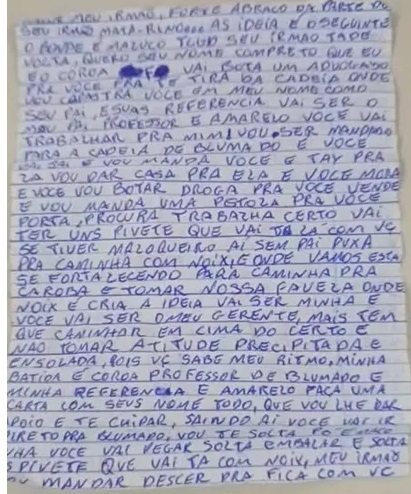 MEU IRMÃO, FORTE ABRAÇO DA PARTE DO
SEU IRMÃO MATA-RINDO=== AS IDEIA E OSEGUINTE
O BONDE E MALUCO TLGD SEU IRMÃO TADE
VOLTA, QUERO SEU NOME COMPRETO QUE EU
E O COROA F VAI BOTA UM ADVOGADO
PRA VOCE PRA TE TIRA DA CADEIA ONDE
VOU CAPASTRA VOCE EM MEU NOME COMO
SEU PAI, ESUAS REFERENCIA VAI SER O
MEU PAI, PROFESSOR E AMARELO VOCE VAI
TRABALHAR PRA MIM, VOU SER MANDADO
PARA A CADEIA DE BLUMADO E VOCE
VAI E VOU MANDA VOCE E TAY PRA
LA VOU DAR CASA PRA ELA E VOCE MORA
E VOCE VOU BOTAR DROGA PRA VOCE VENDE
E VOU MANDA UMA PSTOLA PRA VOCE
PORTA, PROCURA TRABALHA CERTO VAI
TER UNS PIVETE QUE VAI TA LA COM VC
SE TIVER MALOQUEIRO AI SEM PAI PUXA
PRA CAMINHA COM NOIX, E ONDE VAMOS ESTA
SE FORTALECENDO PARA CAMINHA PRA
CAROBA E TOMAR NOSSA FAVELA ONDE
NOIX E CRIA A IDEIA VAI SER MINHA E
VOCE VAI SER O MEU GERENTE, MAIS TEM
QUE CAMINHAR EM CIMA DO CERTO E
NÃO TOMAR ATITUDE PRECIPITADA E
ENSOLADA, POIS VC SABE MEU RITMO, MINHA
BATIDA E COROA PROFESSOR DE BLUMADO E
MINHA REFERENCIA E AMARELO FAÇA UMA
CARTA COM SEUS NOME TODO, QUE VOU LHE DAR
APOIO E TE CUIPAR, SAINDO AI VOCE VAI IR
DIRETO PRA BLUMADO, VOU TE SOLTA
VOCE VAI PEGAR SOLTA EMBALAR E SOLTA
OS PIVETE QUE VAI TA COM NOIX, MEU IRMÃO
VOU MANDAR DESCER PRA FICA COM VC